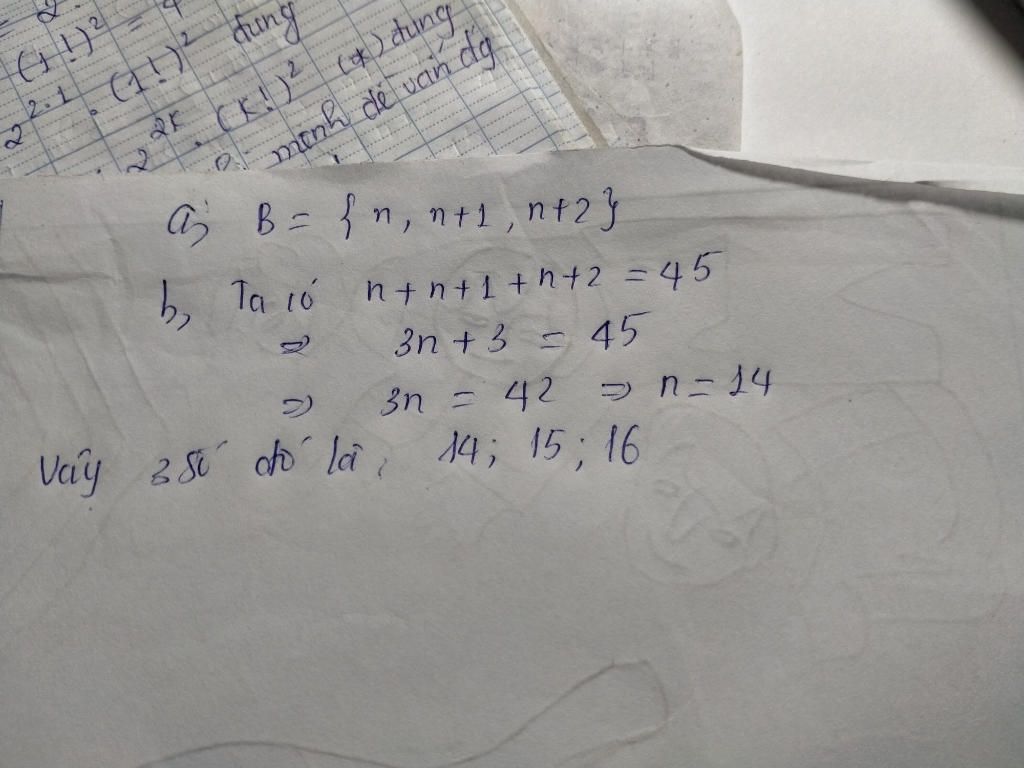 = 2.
(1!)² = 4
2²·¹ · (1!)² đúng
2²ᴷ · (K!)² (*) đúng
mệnh đề vẫn đg
a; B = { n, n+1, n+2}
b, Ta có n + n + 1 + n + 2 = 45
=> 3n + 3 = 45
=> 3n = 42 => n = 14
Vậy 3 số đó là, 14; 15; 16